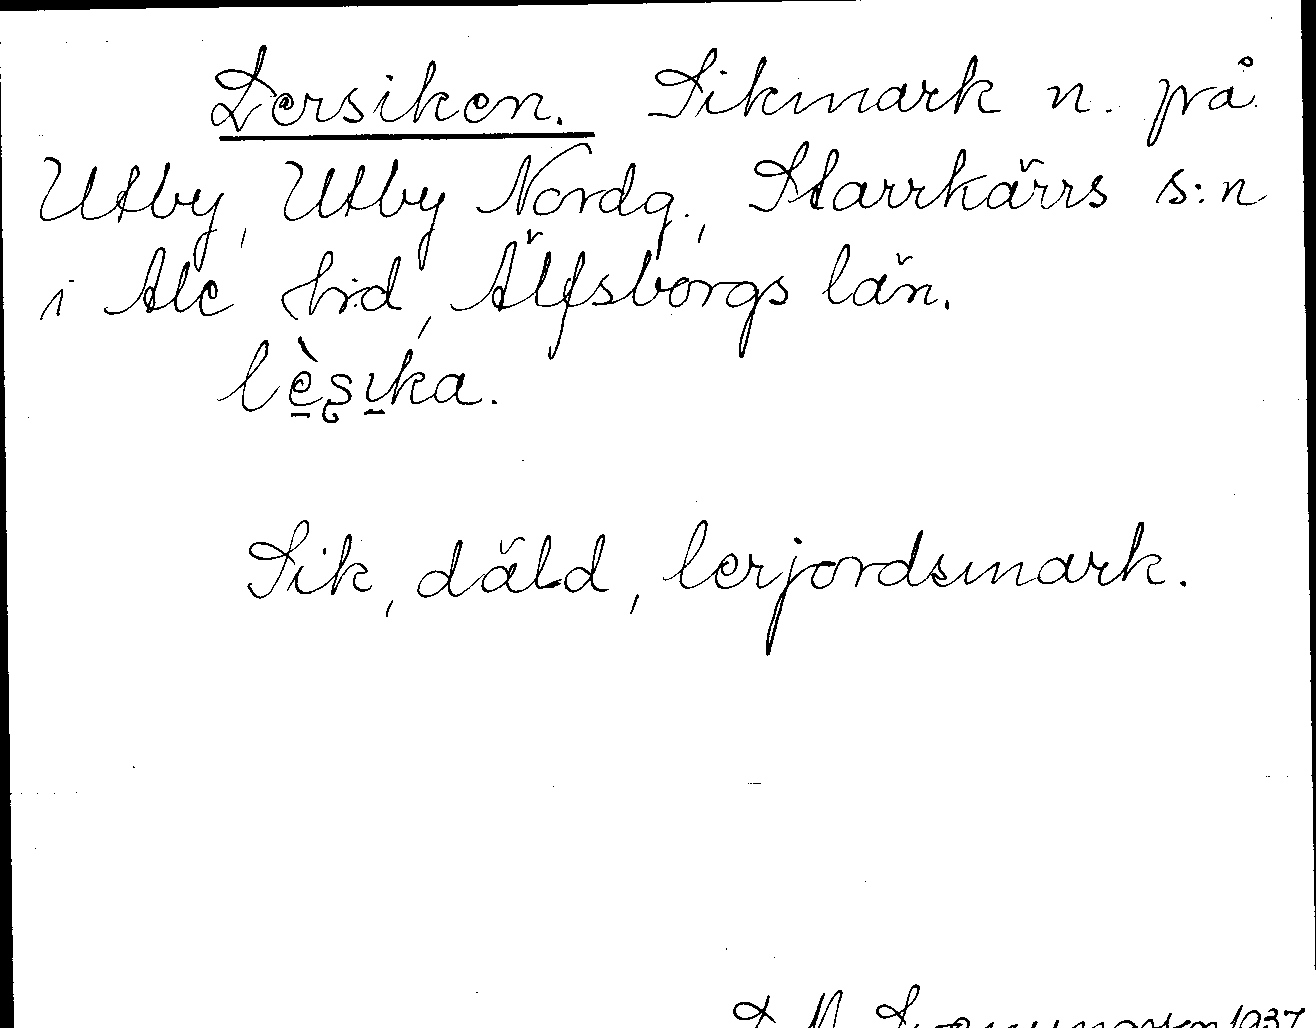 Lersiken. Sikmark n. på
Utby, Utby Nordg., Starrkärrs s:n
i Ale hd, Älfsborgs län.
lè̱ʂı̱ka.
Sik, däld, lerjordsmark.
1937